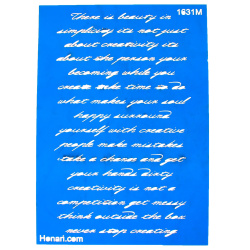 1631M
There is beauty in
simplicity its not just
about creativity its
about the person your
becoming while you
create take time to do
what makes your soul
happy surround
yourself with creative
people make mistakes
take a chance and get
your hands dirty
creativity is not a
competition get messy
think outside the box
never stop creating
Honari.com